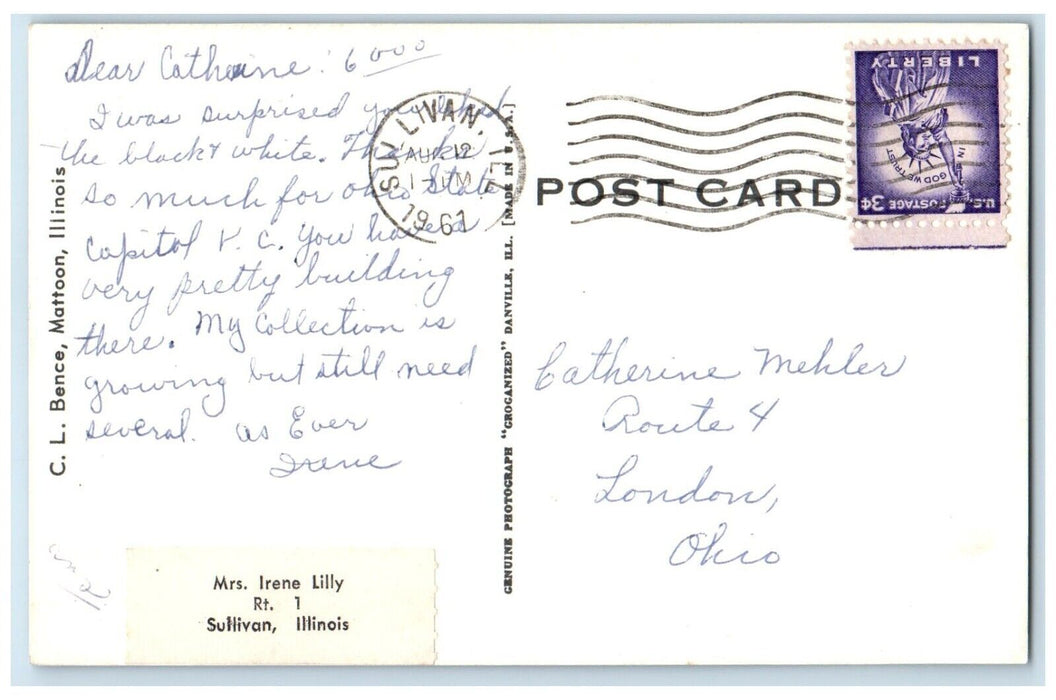 Dear Catherine: 6000
I was surprised you liked
the black & white. Thanks
so much for Ohio State
Capitol P. C. You have a
very pretty building
there. My collection is
growing but still need
several. As Ever
Irene
C. L. Bence, Mattoon, Illinois
Mrs. Irene Lilly
Rt. 1
Sullivan, Illinois
SULLIVAN, ILL.
AUG 12
PM
1961
GENUINE PHOTOGRAPH "GROGANIZED" DANVILLE, ILL. [MADE IN U.S.A.]
POST CARD
LIBERTY
IN GOD WE TRUST
U.S. POSTAGE 3¢
Catherine Mehler
Route 4
London,
Ohio